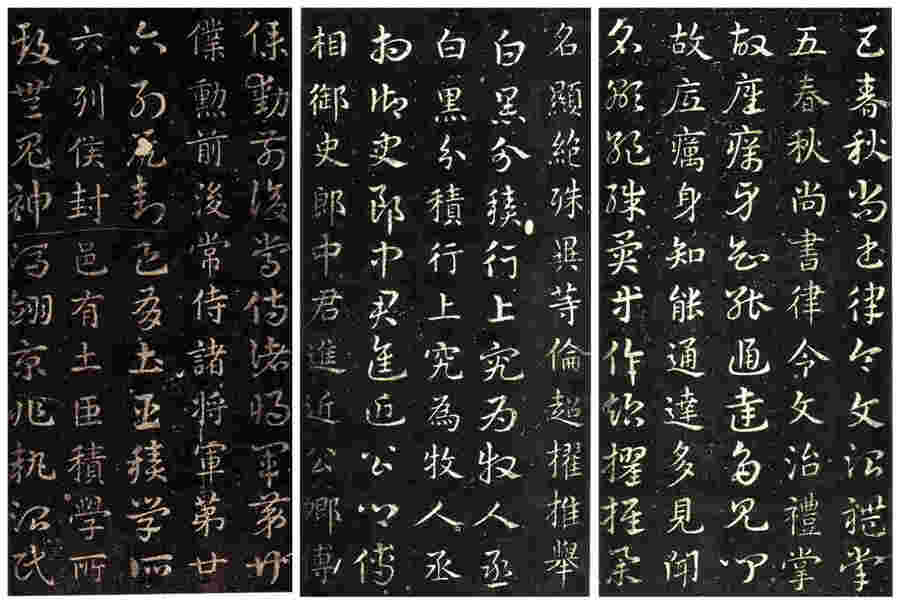 五春秋尚書律令文治禮掌
五春秋尚書律令文治禮掌
故座癘身知能通達多見聞
故庢癘身知能通達多見聞
名顯絕殊異等倫超擢推舉
名顯絕殊異等倫超擢推舉
白黑分積行上究為牧人丞
白黑分積行上究為牧人丞
相御史郎中君進近公卿傅
相御史郎中君進近公卿傅
僕勳前後常侍諸將軍第廿
僕勳前後常侍諸將軍第廿
六列侯封邑有土臣積學所
六列侯封邑有土臣積學所
致無鬼神馮翊京兆執治民